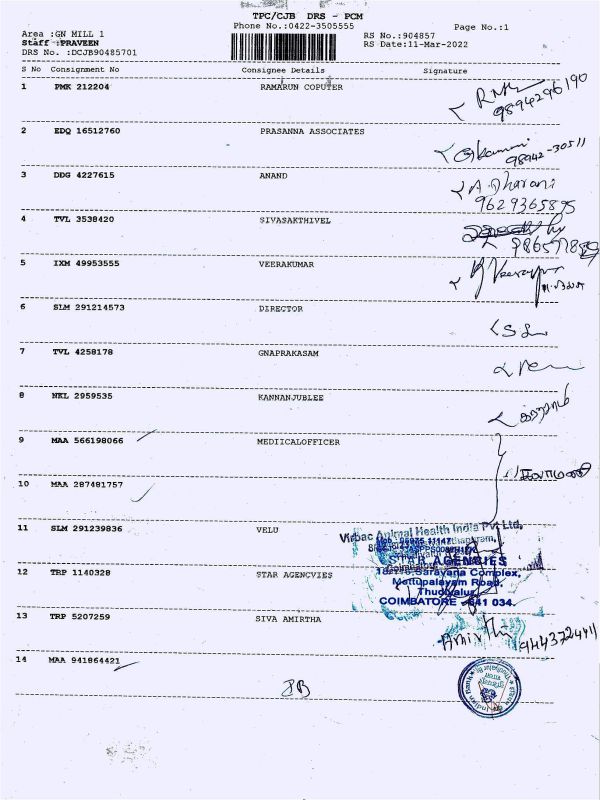 TPC/CJB DRS - PCM
Phone No.:0422-3505555
Page No.:1
Area :GN MILL 1
RS No.:904857
Staff :PRAVEEN
RS Date:11-Mar-2022
DRS No. :DCJB90485701
S No Consignment No Consignee Details Signature
1 PMK 212204 RAMARUN COPUTER
9894296190
2 EDQ 16512760 PRASANNA ASSOCIATES
98942-30511
3 DDG 4227615 ANAND A. Dharani
9629365895
4 TVL 3538420 SIVASAKTHIVEL
5 IXM 49953555 VEERAKUMAR
6 SLM 291214573 DIRECTOR
7 TVL 4258178 GNAPRAKASAM
8 NKL 2959535 KANNANJUBLEE
9 MAA 566198066 MEDIICALOFFICER
10 MAA 287481757
11 SLM 291239836 VELU
Virbac Animal Health India Pvt Ltd,
12 TRP 1140328 STAR AGENCVIES
STAR AGENCIES
Saravana Complex,
Mettupalayam Road,
Thudiyalur,
COIMBATORE - 641 034.
13 TRP 5207259 SIVA AMIRTHA
Amirtha
14 MAA 941864421